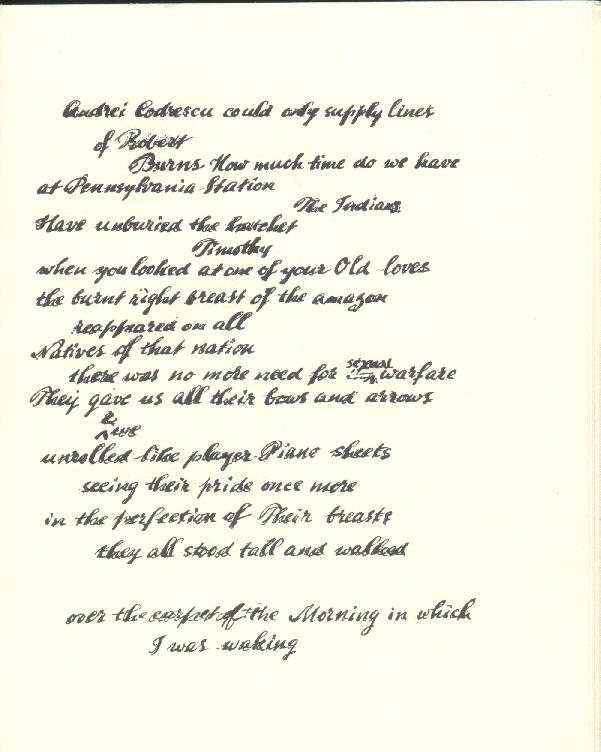 Andrei Codrescu could only supply lines
of Robert
Burns. How much time do we have
at Pennsylvania Station
The Indians
Have unburied the hatchet
Timothy
when you looked at one of your Old loves
the burnt right breast of the amazon
reappeared on all
Natives of that nation
there was no more need for sexual warfare
They gave us all their bows and arrows
& we
unrolled like player Piano sheets
seeing their pride once more
in the perfection of Their breasts
they all stood tall and walked
over the carpet of the Morning in which
I was waking